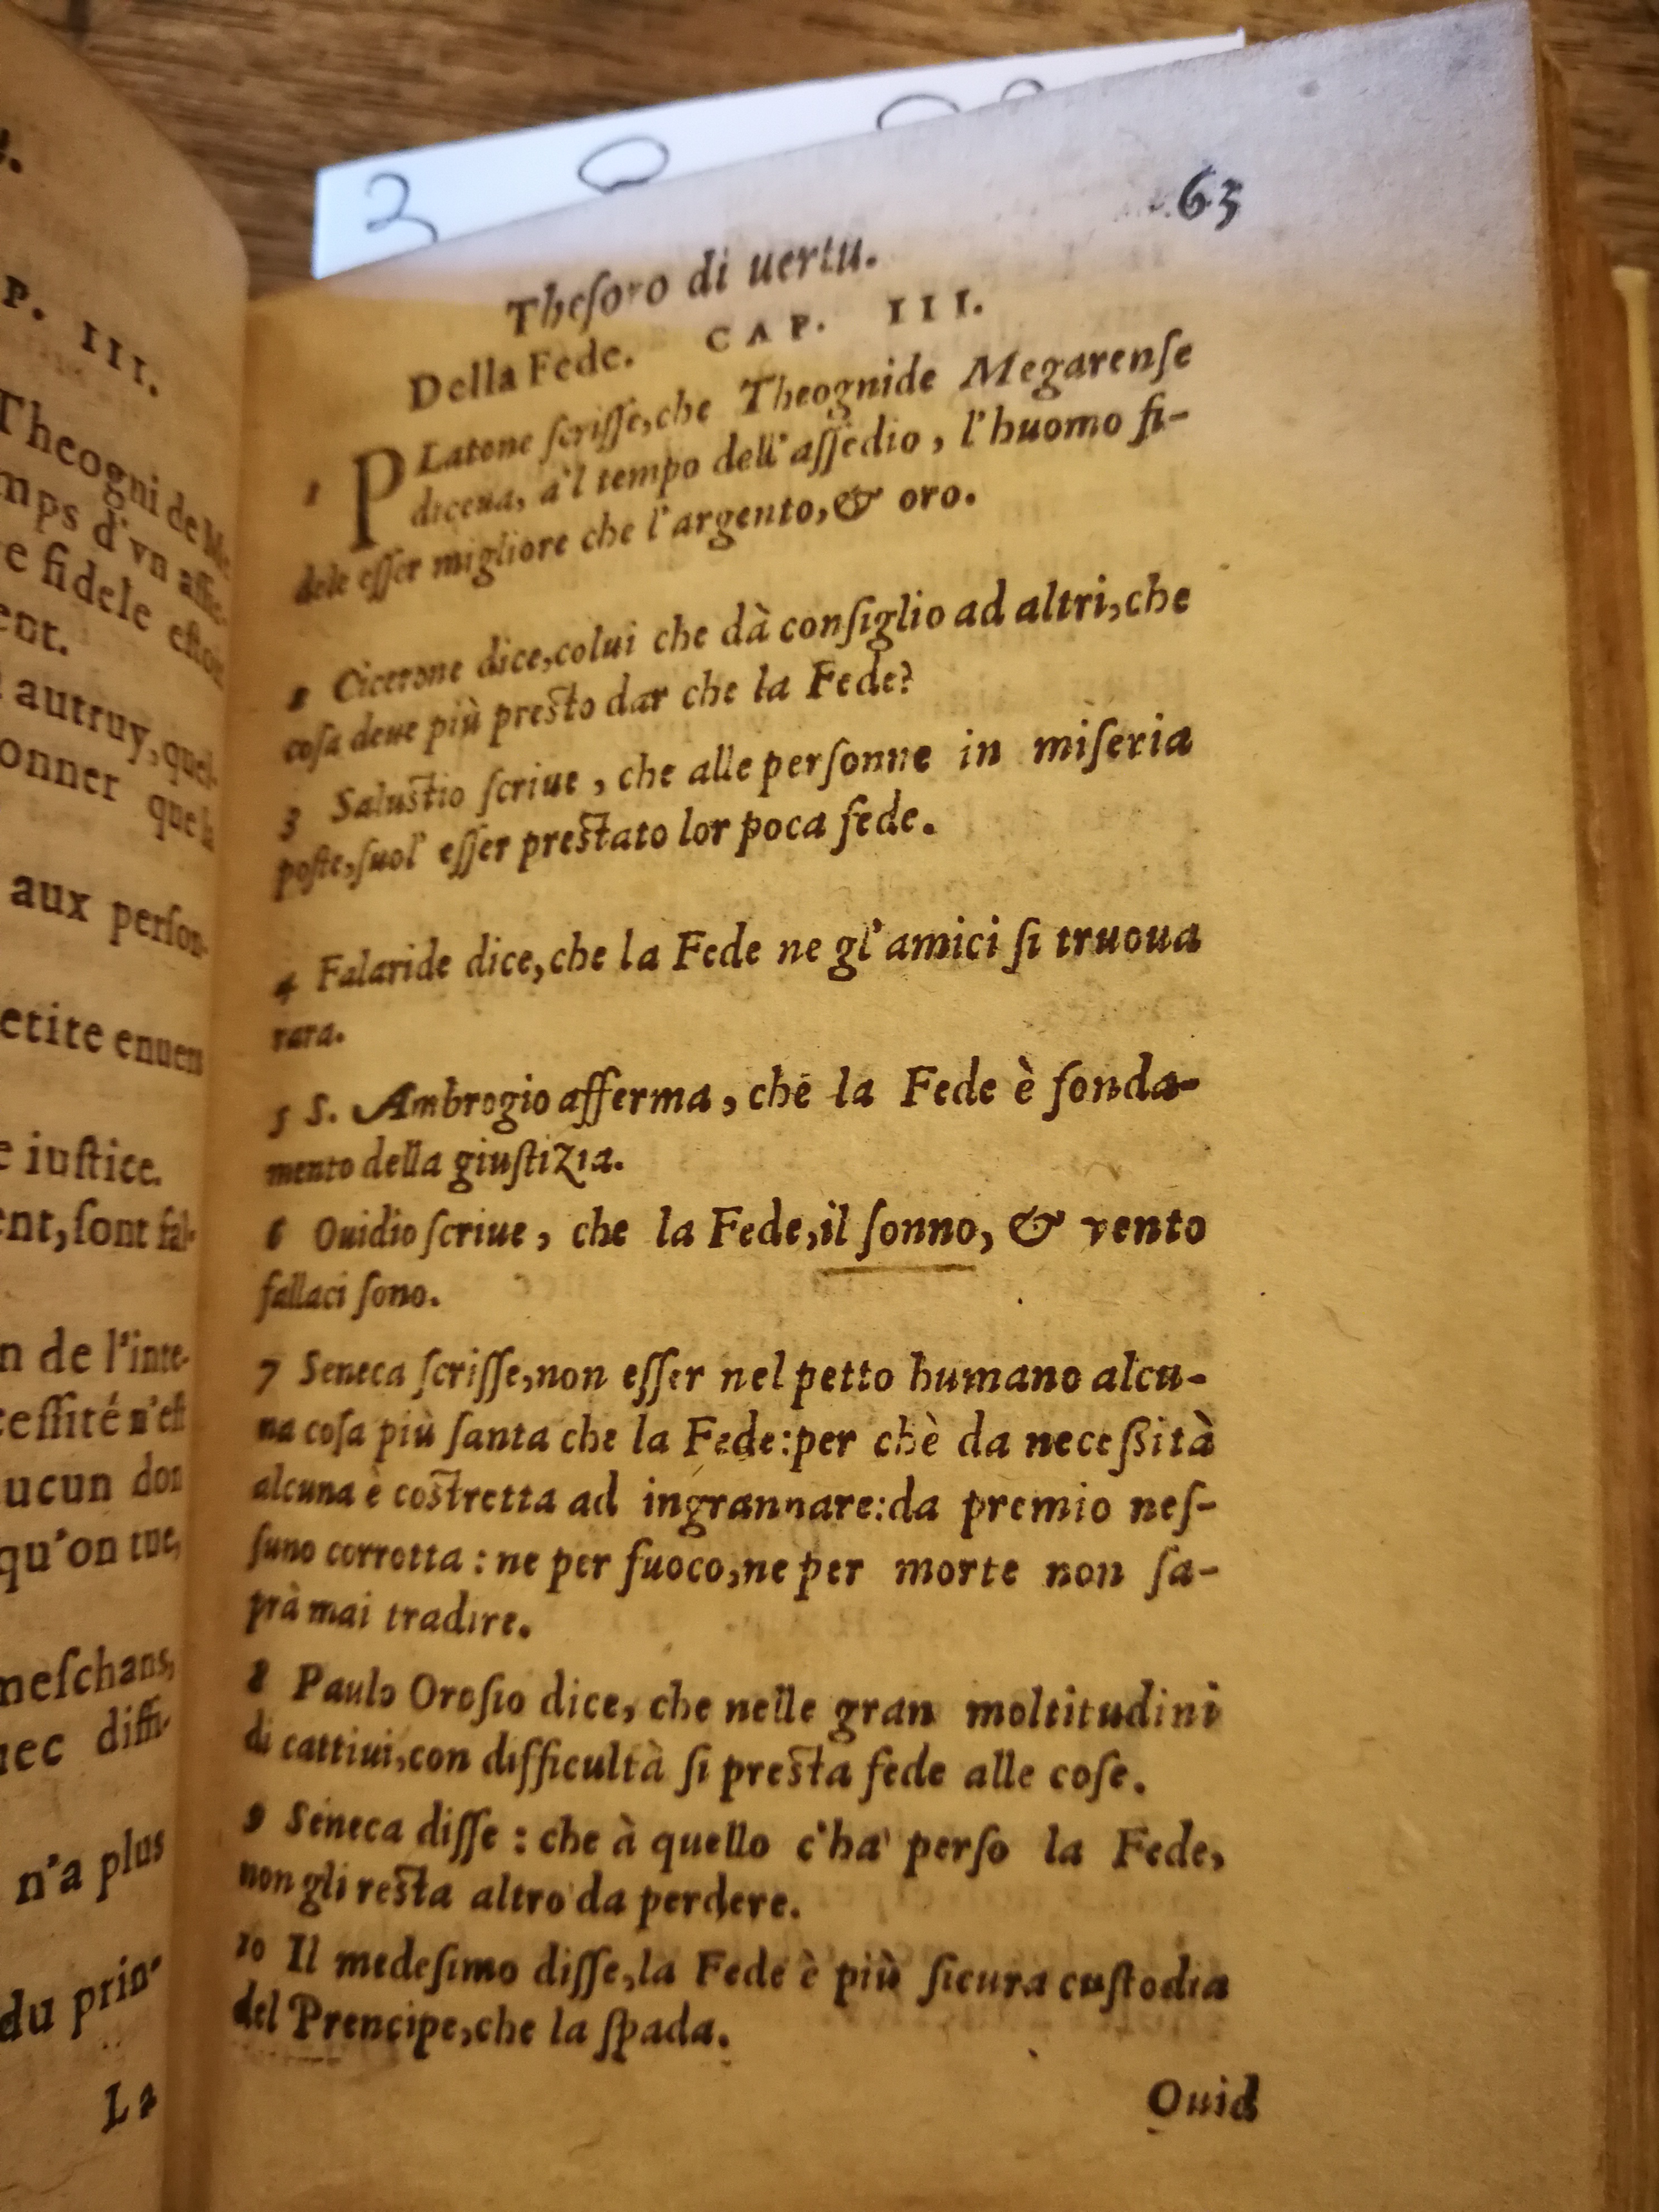 P. III.
Theogni de Me
mps d'vn aſsie-
e fidele eſtoi
ent.
autruy, quel-
onner que la
aux perſon-
etite enuers
e iuſtice.
ent, ſont fal-
n de l'inte-
ceſſité n'eſt
ucun don
qu'on tue,
meſchans,
nec diffi-
n'a plus
du prin-
La
63
Theſoro di uertu.
Della Fede. CAP. III.
1 PLatone ſcriſſe, che Theognide Megarenſe
diceua, a'l tempo dell'aſſedio, l'huomo fi-
dele eſſer migliore che l'argento, & oro.
2 Cicerone dice, colui che dà conſiglio ad altri, che
coſa deue più presto dar che la Fede?
3 Salustio ſcriue, che alle perſonne in miſeria
poſte, ſuol' eſſer prestato lor poca fede.
4 Falaride dice, che la Fede ne gl'amici ſi truoua
rara.
5 S. Ambrogio afferma, che la Fede è fonda-
mento della giuſtizia.
6 Ouidio ſcriue, che la Fede, il ſonno, & vento
fallaci ſono.
7 Seneca ſcriſſe, non eſſer nel petto humano alcu-
na coſa più ſanta che la Fede: per chè da neceſsità
alcuna è costretta ad ingrannare: da premio neſ-
ſuno corrotta: ne per fuoco, ne per morte non ſa-
prà mai tradire.
8 Paulo Oroſio dice, che nelle gran moltitudini
di cattiui, con difficultà ſi presta fede alle coſe.
9 Seneca diſſe: che à quello c'ha' perſo la Fede,
non gli resta altro da perdere.
10 Il medeſimo diſſe, la Fede è più ſicura cuſtodia
del Prencipe, che la ſpada.
Ouid